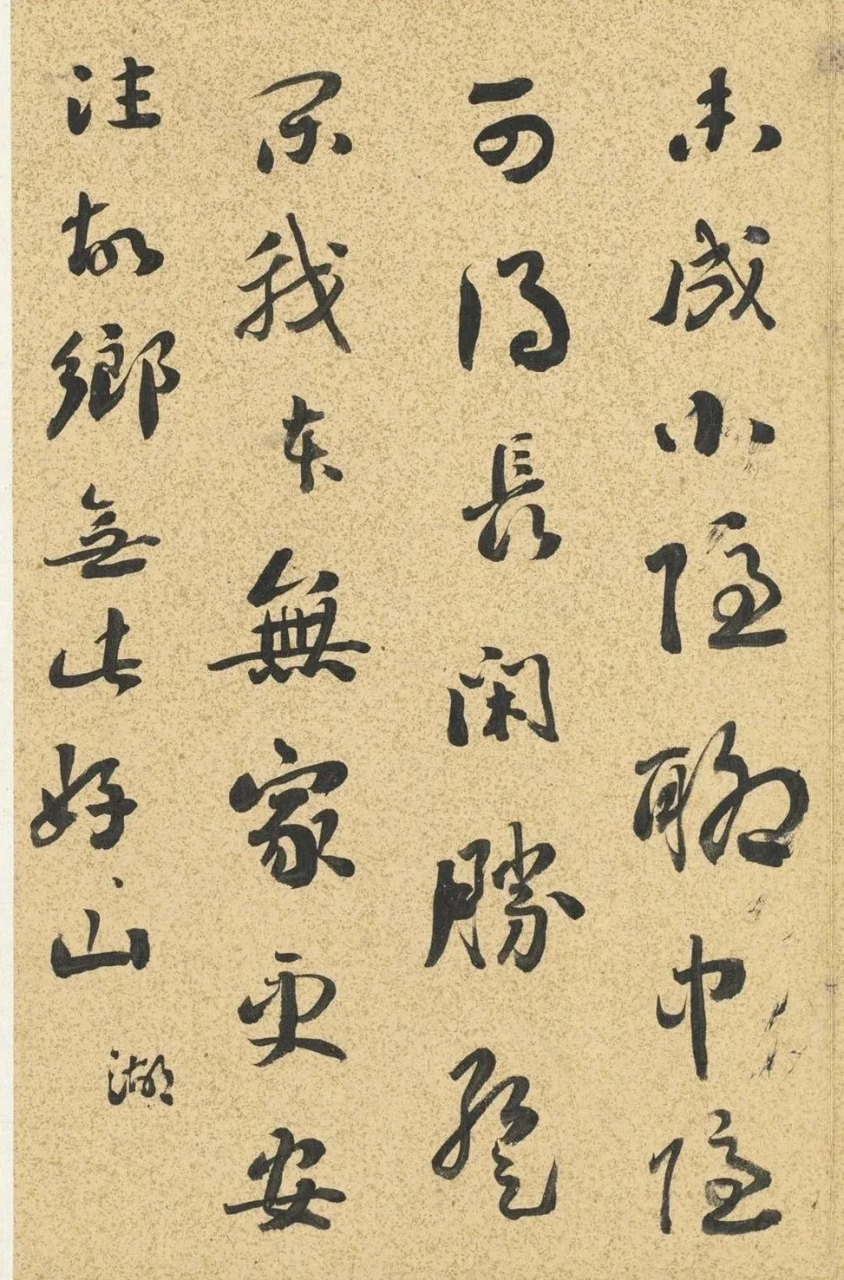 未成小隱聊中隱
可得長閑勝暫
閑我本無家更安
往故鄉無此好山
湖